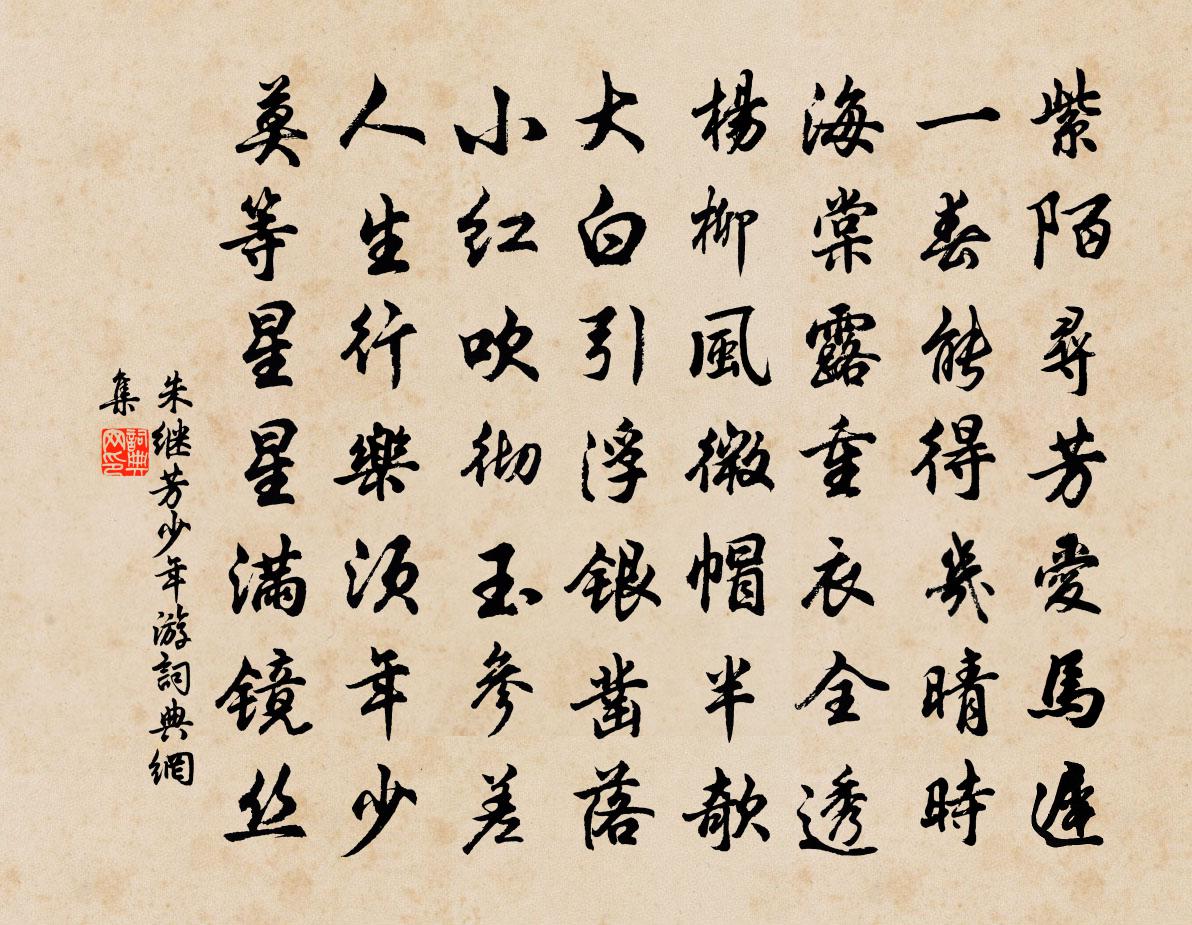 紫陌尋芳愛馬遲
一春能得幾晴時
海棠露重衣全透
楊柳風微帽半欹
大白引浮銀凿落
小紅吹彻玉參差
人生行樂须年少
莫等星星满镜丝
朱继芳少年游詞典網
集
詞典网印